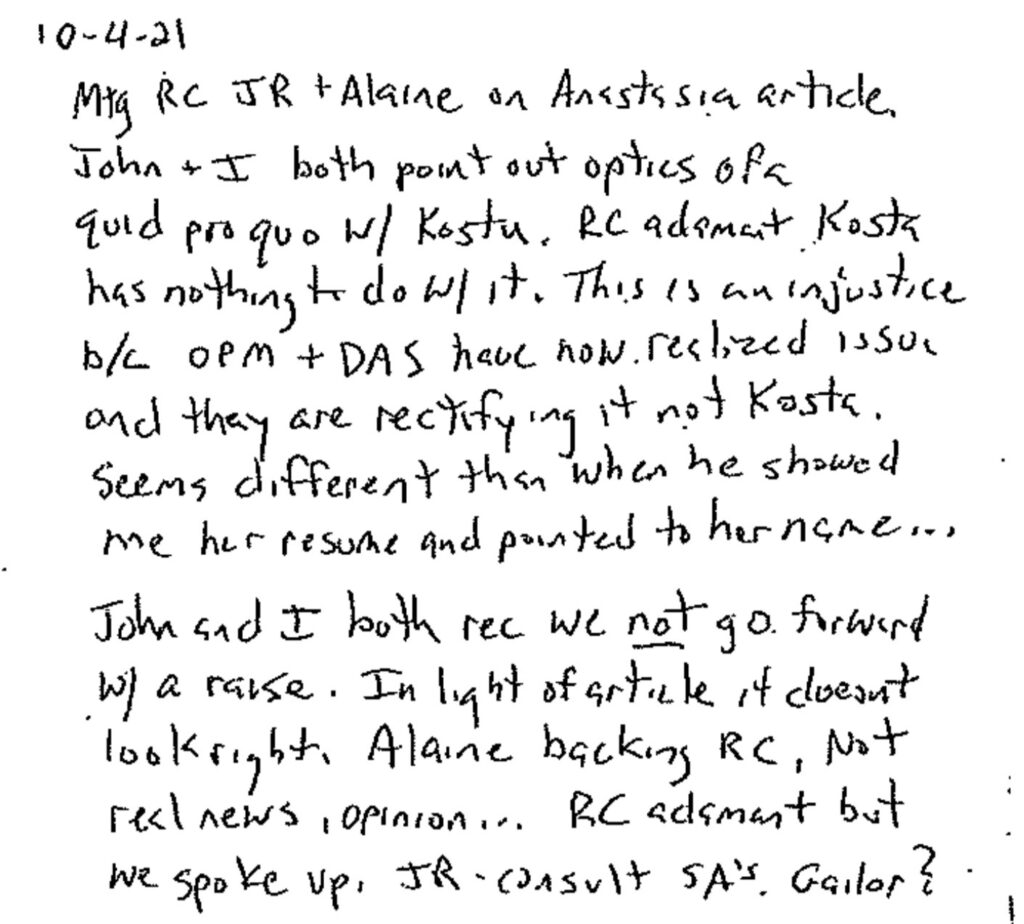 10-4-21
Mtg RC JR + Alaine on Anastasia article.
John + I both point out optics of a
quid pro quo w/ Kosta. RC adamant Kosta
has nothing to do w/ it. This is an injustice
b/c OPM + DAS have now realized issue
and they are rectifying it not Kosta.
Seems different than when he showed
me her resume and pointed to her name...
John and I both rec we not go forward
w/ a raise. In light of article it doesnt
look right. Alaine backing RC, Not
real news, opinion... RC adamant but
we spoke up. JR - consult SA's. Gailor?